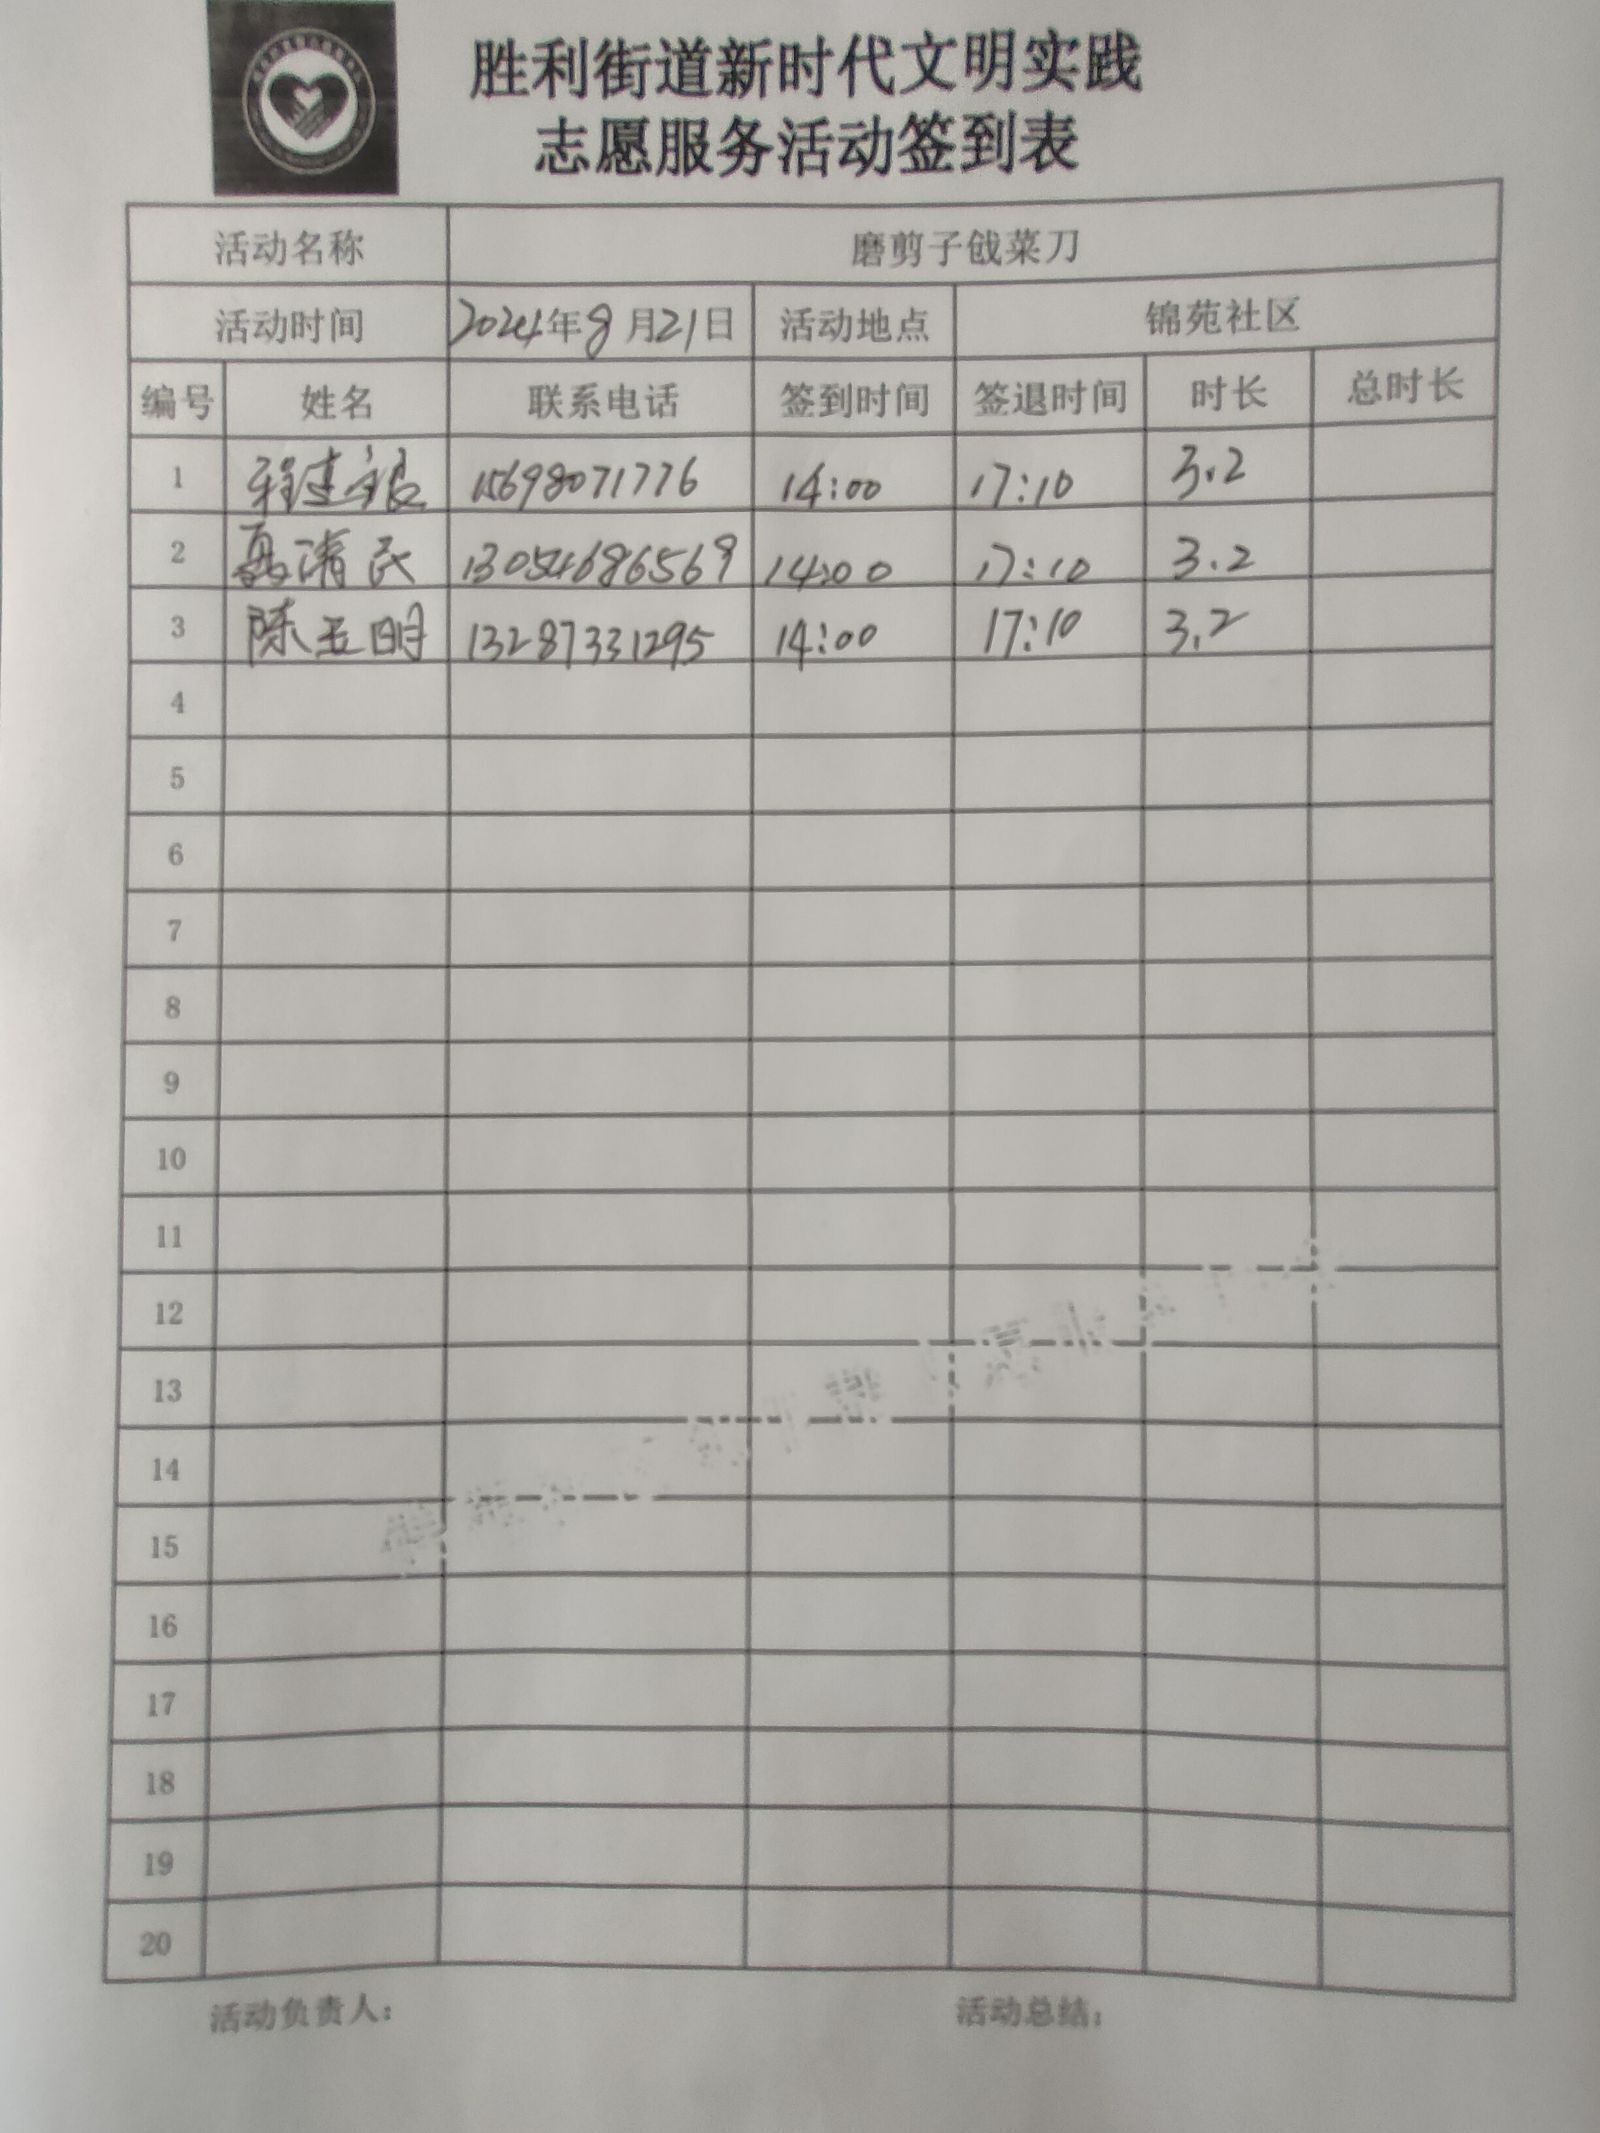 胜利街道新时代文明实践
志愿服务活动签到表
活动名称 磨剪子戗菜刀
活动时间 2024年8月21日 活动地点 锦苑社区
编号 姓名 联系电话 签到时间 签退时间 时长 总时长
1 程建银 15698071776 14:00 17:10 3.2
2 聂清民 13054686569 14:00 17:10 3.2
3 陈玉明 13287331295 14:00 17:10 3.2
4
5
6
7
8
9
10
11
12
13
14
15
16
17
18
19
20
活动负责人: 活动总结: